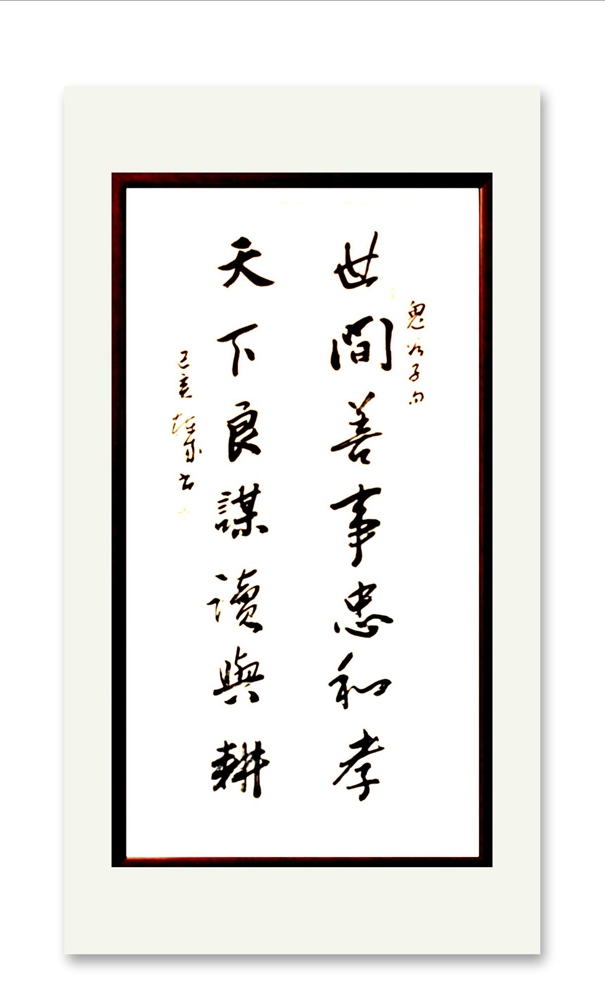 鬼谷子句
世間善事忠和孝
天下良謀讀與耕
己亥
書